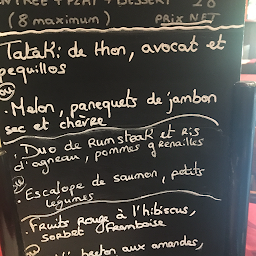 ENTRÉE + PLAT + DESSERT 28
(8 maximum) PRIX NET
Tataki de thon, avocat et
pequillos
ou
. Melon, panequets de jambon
sec et chèvre
. Duo de Rumsteak et Ris
d'agneau, pommes grenailles
ou
. Escalope de saumon, petits
légumes
. Fruits Rouge à l'hibiscus,
sorbet Framboise
ou
breton aux amandes,